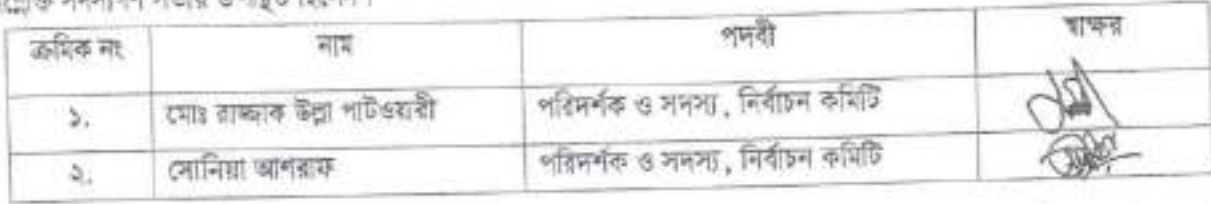 সদস্যগণ সভায় উপস্থিত ছিলেন।
ক্রমিক নং নাম পদবী স্বাক্ষর
১. মোঃ রাজ্জাক উল্লা পাটওয়ারী পরিদর্শক ও সদস্য, নির্বাচন কমিটি
২. সোনিয়া আশরাফ পরিদর্শক ও সদস্য, নির্বাচন কমিটি